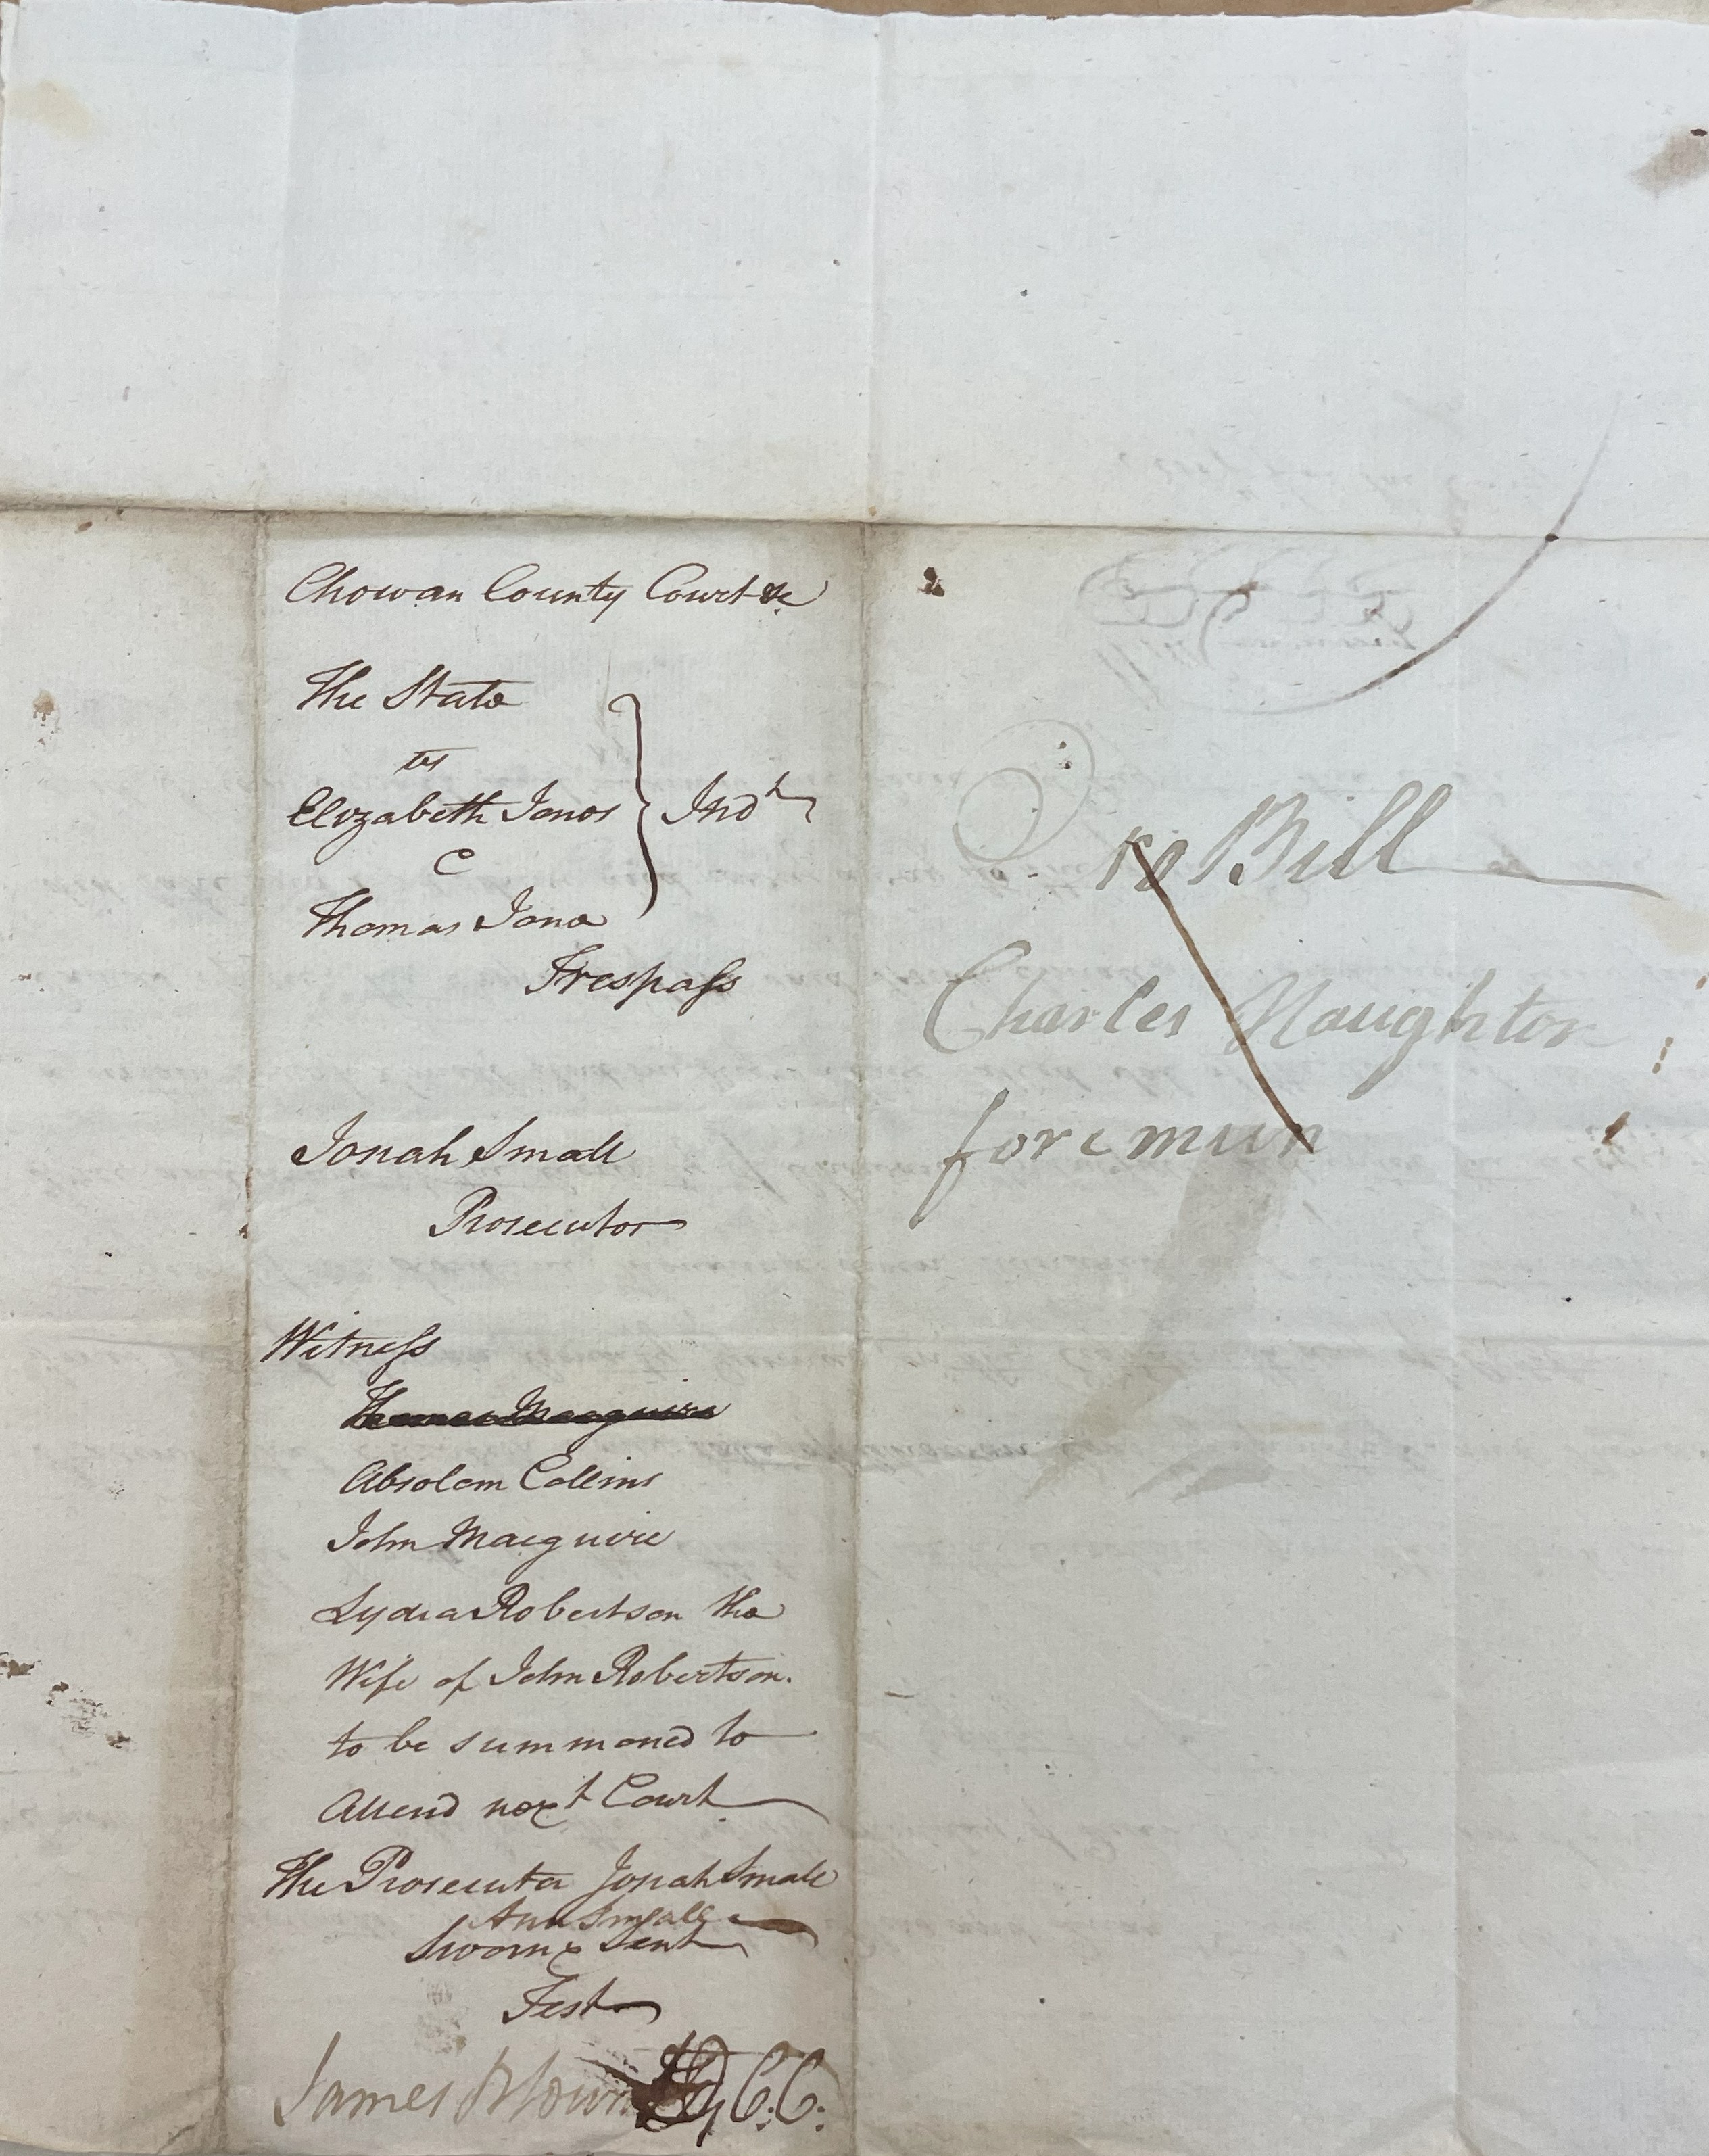 Chowan County Court &c
The State
vs
Elizabeth Jones } Indt
&
Thomas Jone
Trespass
Jonah Small
Prosecutor
Witness
Thomas Macguire
Absolom Collins
John Macguire
Lydia Robertson the
Wife of John Robertson.
to be summoned to
Attend next Court
The Prosecutor Jonah Small
Ann Small
Sworn & Sent
Test
James Blount C.C.
no Bill
Charles Naughton
foreman